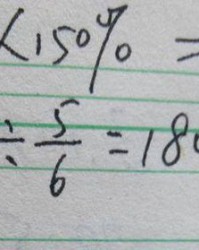 ×150% =
÷ 5/6 = 180